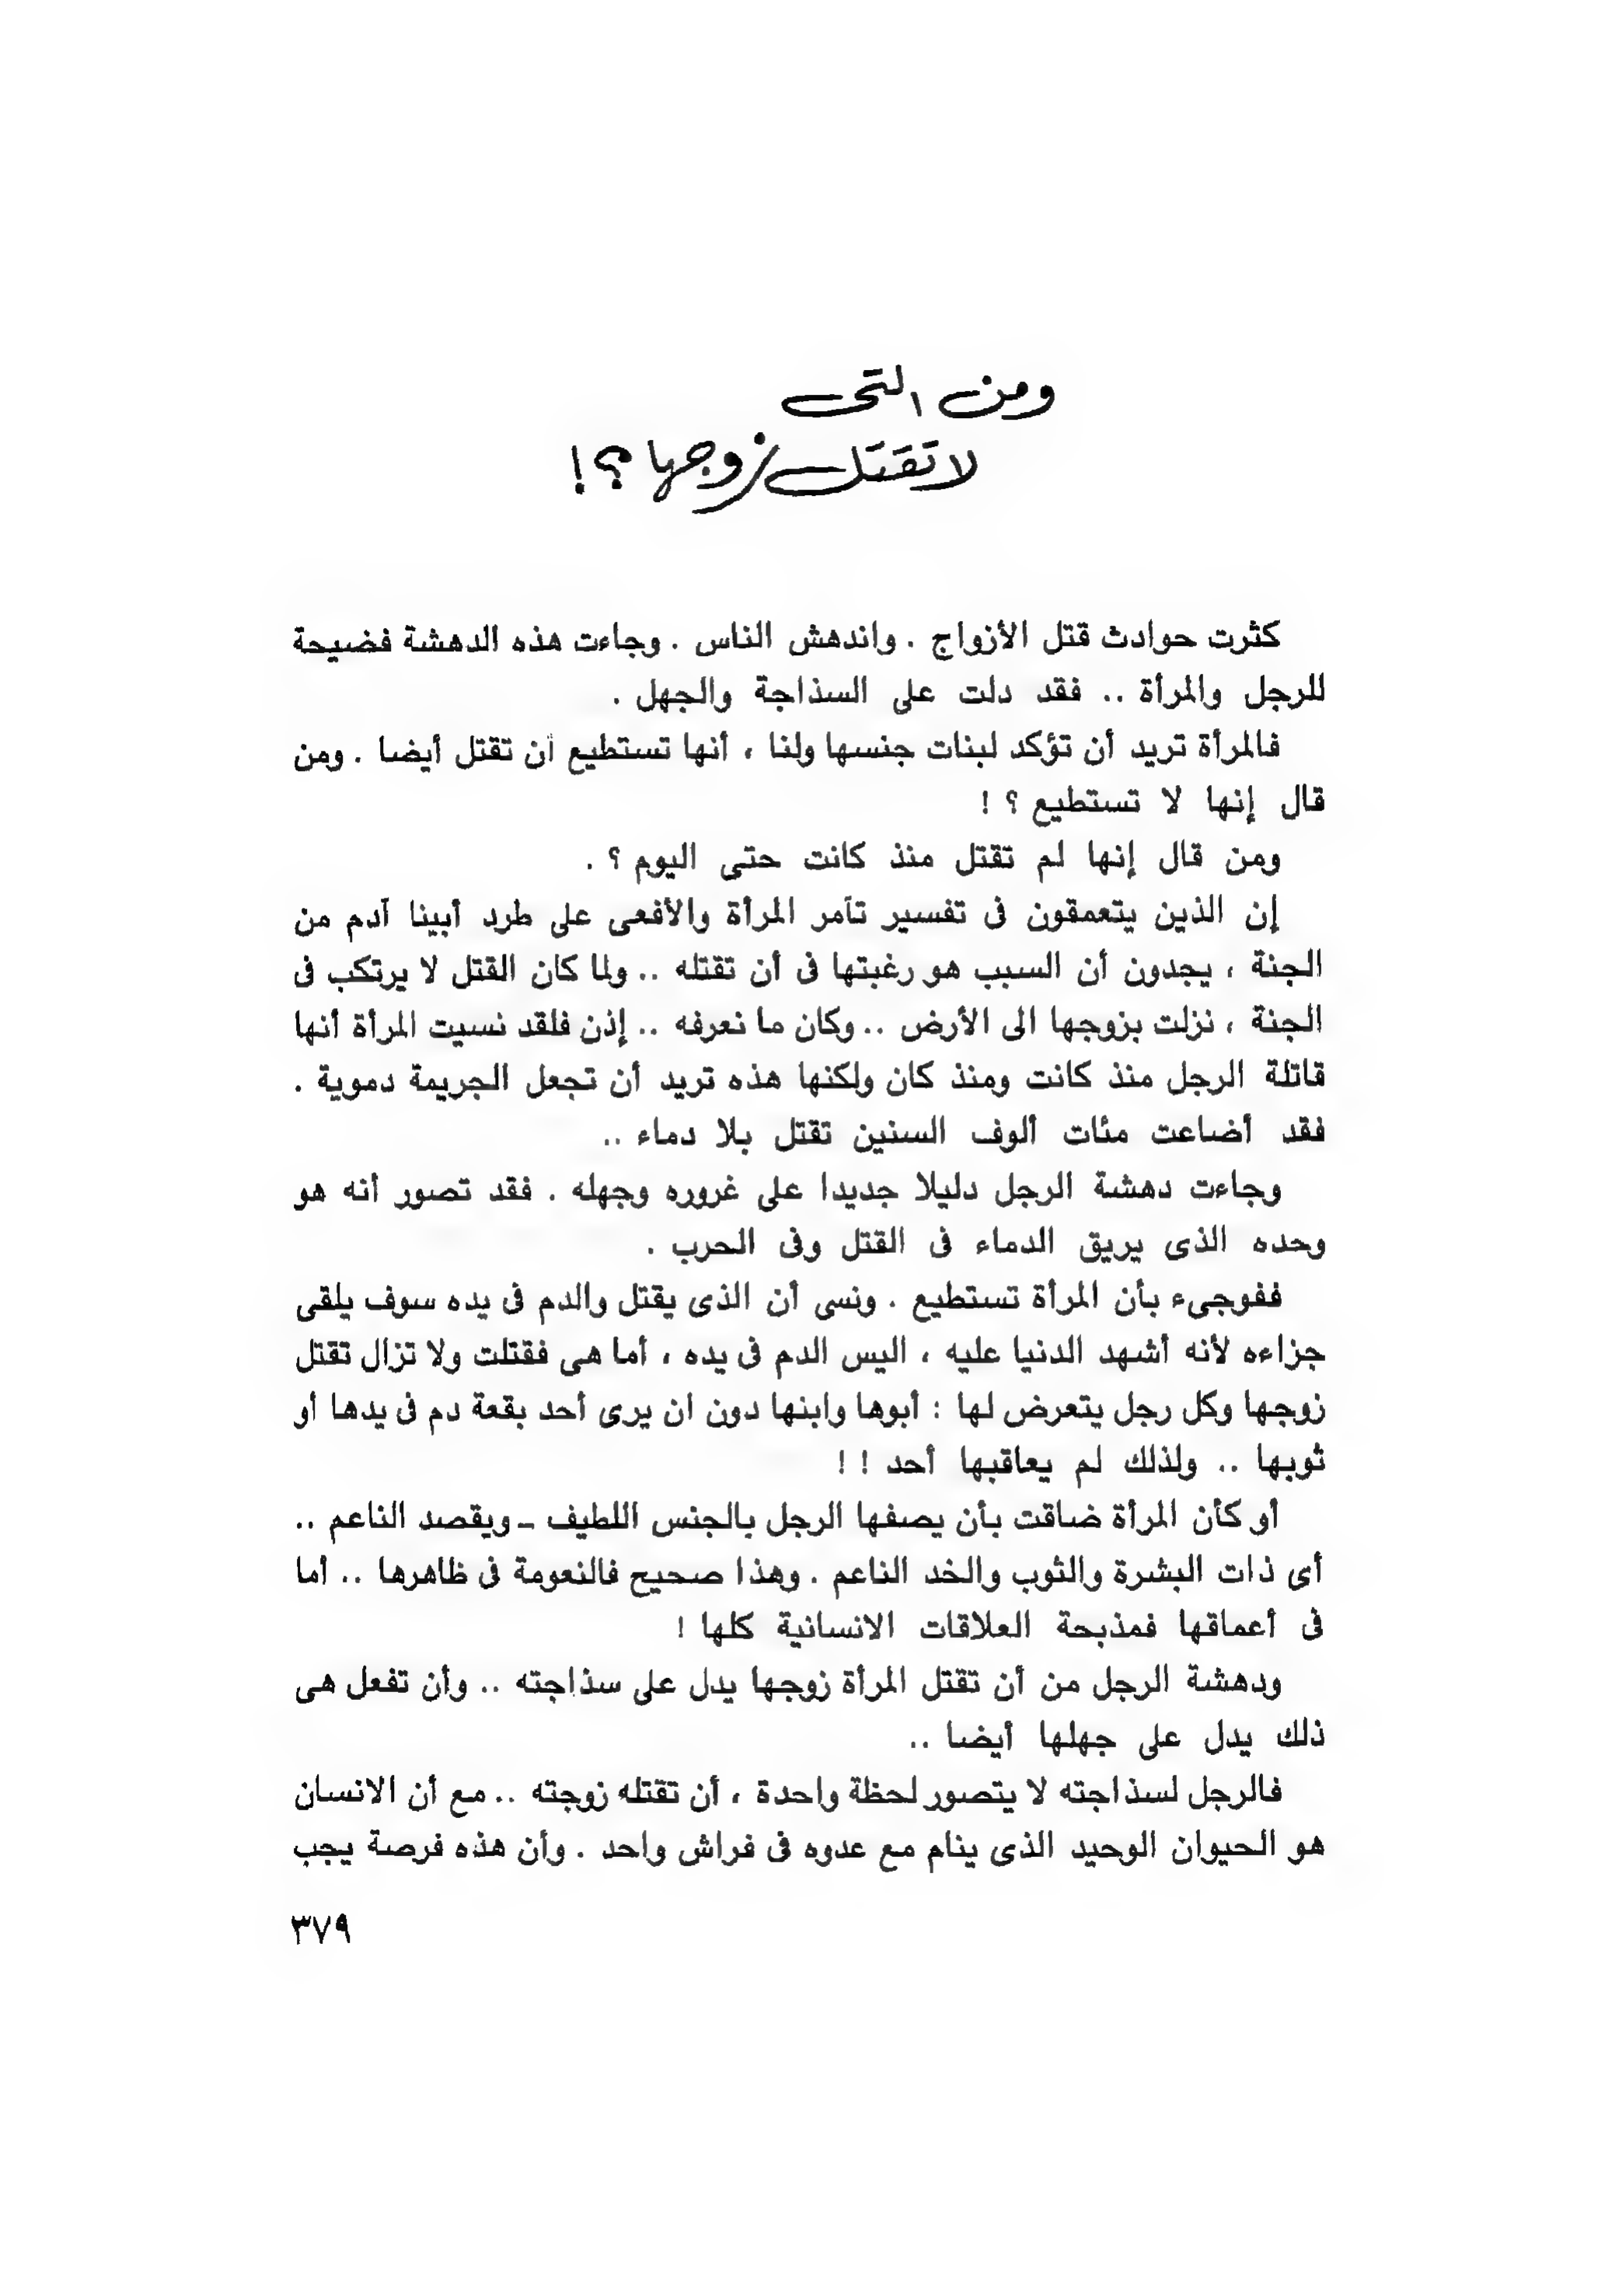 ومن التى
لا تقتل زوجها ؟ !
كثرت حوادث قتل الأزواج . واندهش الناس . وجاءت هذه الدهشة فضيحة
للرجل والمرأة .. فقد دلت على السذاجة والجهل .
فالمرأة تريد أن تؤكد لبنات جنسها ولنا ، أنها تستطيع أن تقتل أيضا . ومن
قال إنها لا تستطيع ؟ !
ومن قال إنها لم تقتل منذ كانت حتى اليوم ؟ .
إن الذين يتعمقون فى تفسير تآمر المرأة والأفعى على طرد أبينا آدم من
الجنة ، يجدون أن السبب هو رغبتها فى أن تقتله .. ولما كان القتل لا يرتكب فى
الجنة ، نزلت بزوجها الى الأرض .. وكان ما نعرفه .. إذن فلقد نسيت المرأة أنها
قاتلة الرجل منذ كانت ومنذ كان ولكنها هذه تريد أن تجعل الجريمة دموية .
فقد أضاعت مئات ألوف السنين تقتل بلا دماء ..
وجاءت دهشة الرجل دليلا جديدا على غروره وجهله . فقد تصور أنه هو
وحده الذى يريق الدماء فى القتل وفى الحرب .
ففوجىء بأن المرأة تستطيع . ونسى أن الذى يقتل والدم فى يده سوف يلقى
جزاءه لأنه أشهد الدنيا عليه ، اليس الدم فى يده ، أما هى فقتلت ولا تزال تقتل
زوجها وكل رجل يتعرض لها : أبوها وابنها دون ان يرى أحد بقعة دم فى يدها أو
ثوبها .. ولذلك لم يعاقبها أحد ! !
أو كأن المرأة ضاقت بأن يصفها الرجل بالجنس اللطيف - ويقصد الناعم ..
أى ذات البشرة والثوب والخد الناعم . وهذا صحيح فالنعومة فى ظاهرها .. أما
فى أعماقها فمذبحة العلاقات الانسانية كلها !
ودهشة الرجل من أن تقتل المرأة زوجها يدل على سذاجته .. وأن تفعل هى
ذلك يدل على جهلها أيضا ..
فالرجل لسذاجته لا يتصور لحظة واحدة ، أن تقتله زوجته .. مع أن الانسان
هو الحيوان الوحيد الذى ينام مع عدوه فى فراش واحد . وأن هذه فرصة يجب
٣٧٩